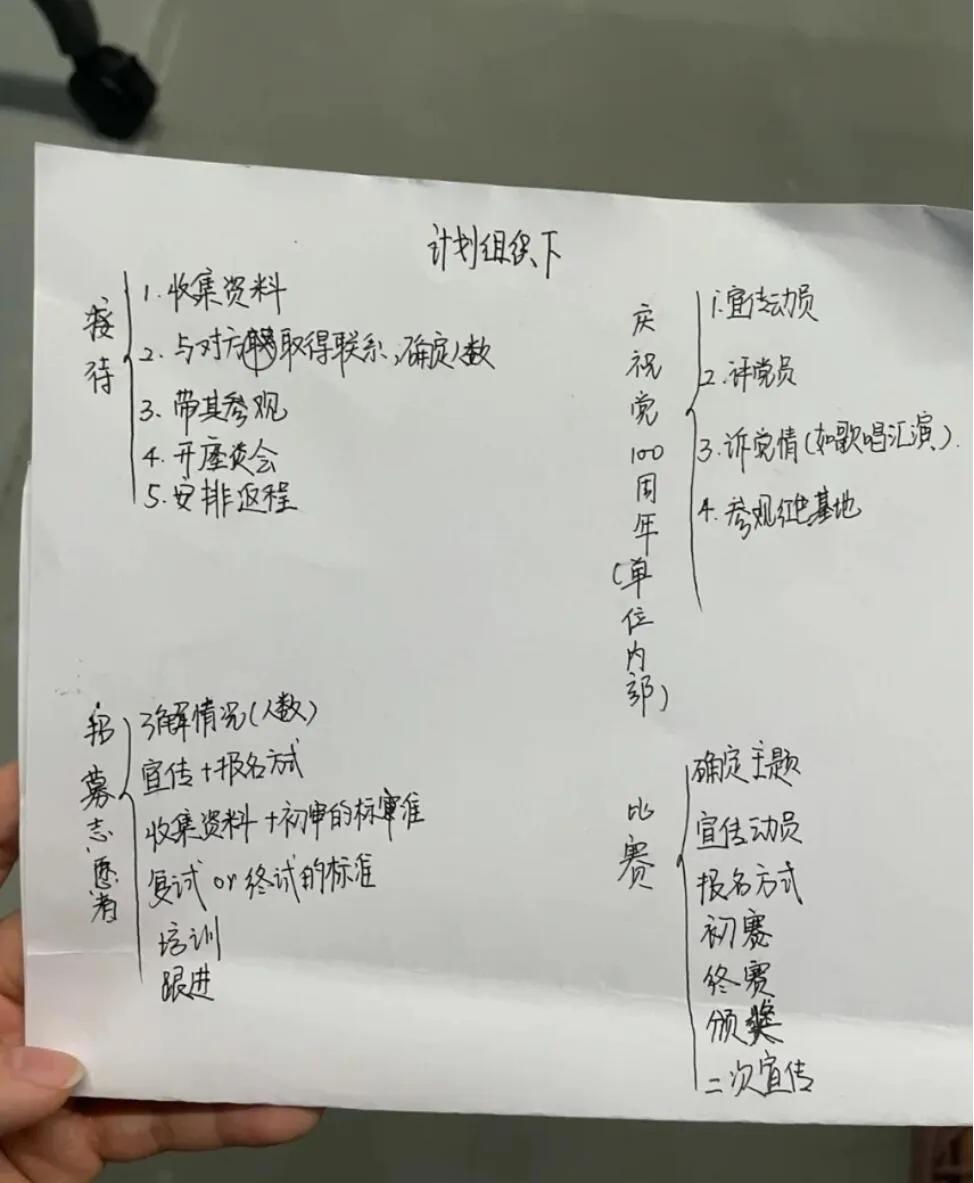 计划组织下
接待
1. 收集资料
2. 与对方取得联系,确定人数
3. 带其参观
4. 开座谈会
5. 安排返程
庆祝党100周年(单位内部)
1. 宣传动员
2. 评党员
3. 诉党情(如歌唱汇演).
4. 参观红色基地
招募志愿者
了解情况(人数)
宣传+报名方式
收集资料+初审的标准
复试 or 终试的标准
培训
跟进
比赛
确定主题
宣传动员
报名方式
初赛
终赛
颁奖
二次宣传